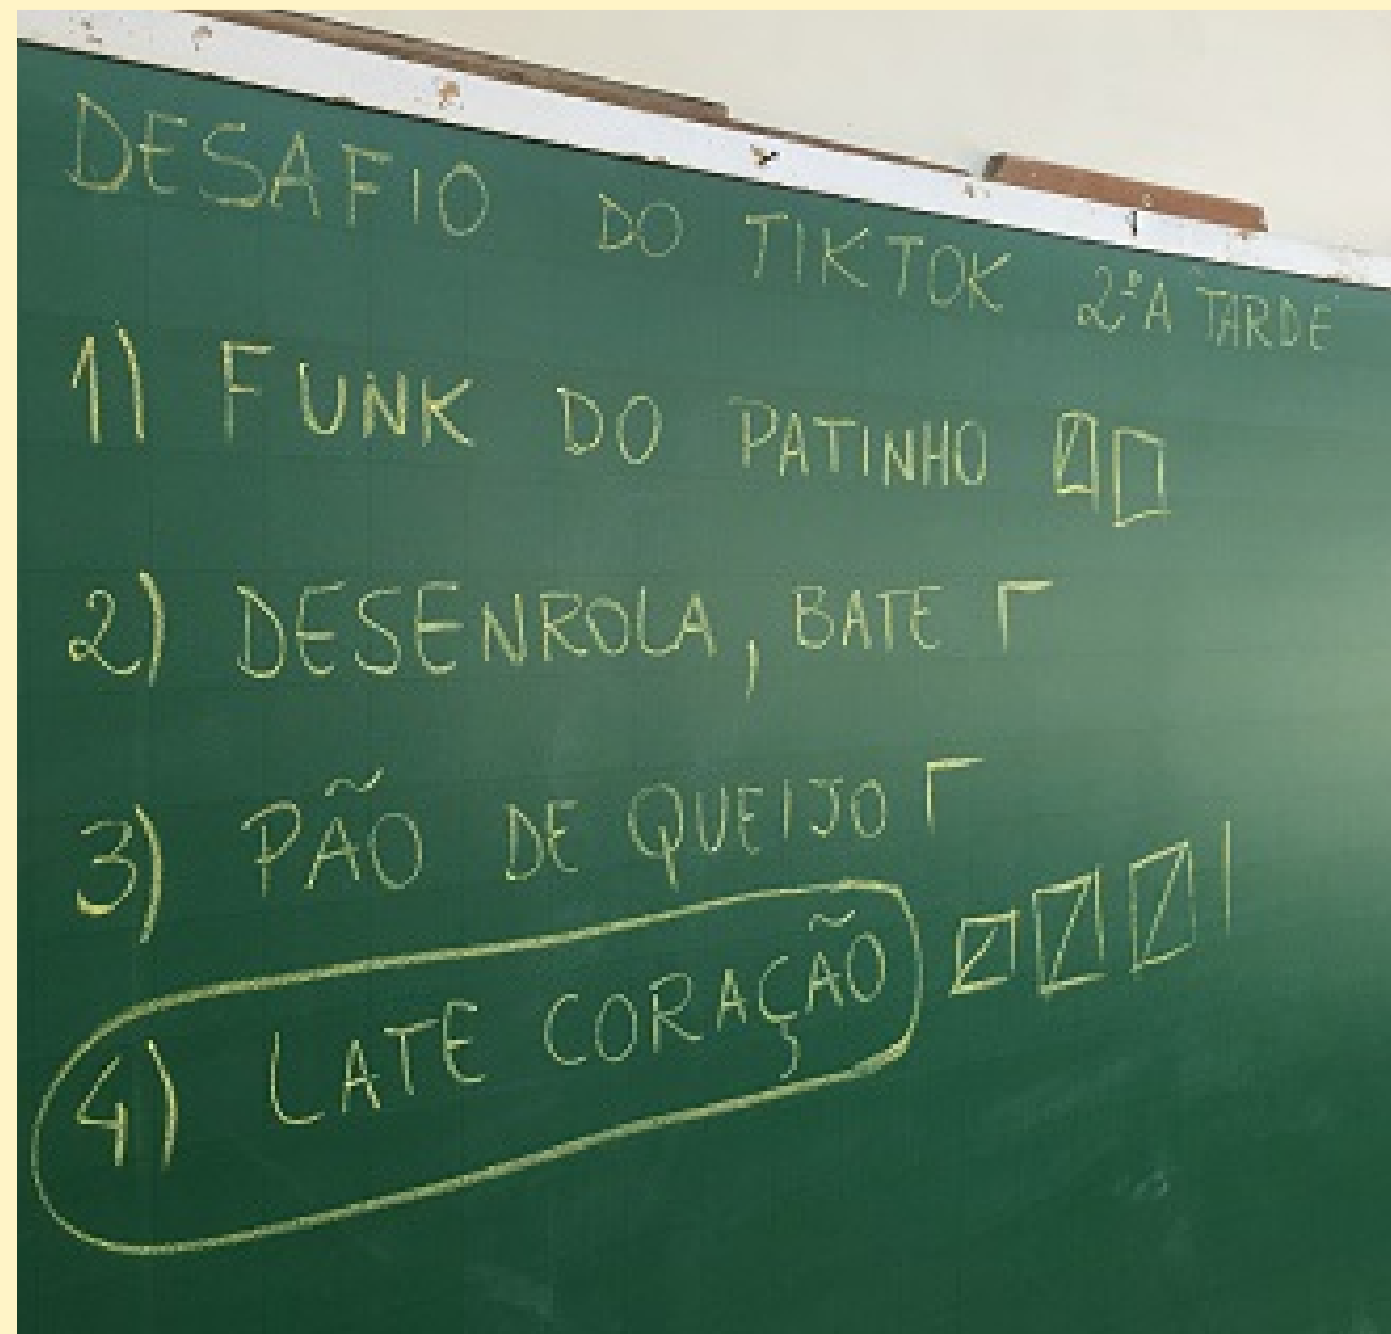 DESAFIO DO TIKTOK 2ºA TARDE
1) FUNK DO PATINHO
2) DESENROLA, BATE
3) PÃO DE QUEIJO
4) LATE CORAÇÃO